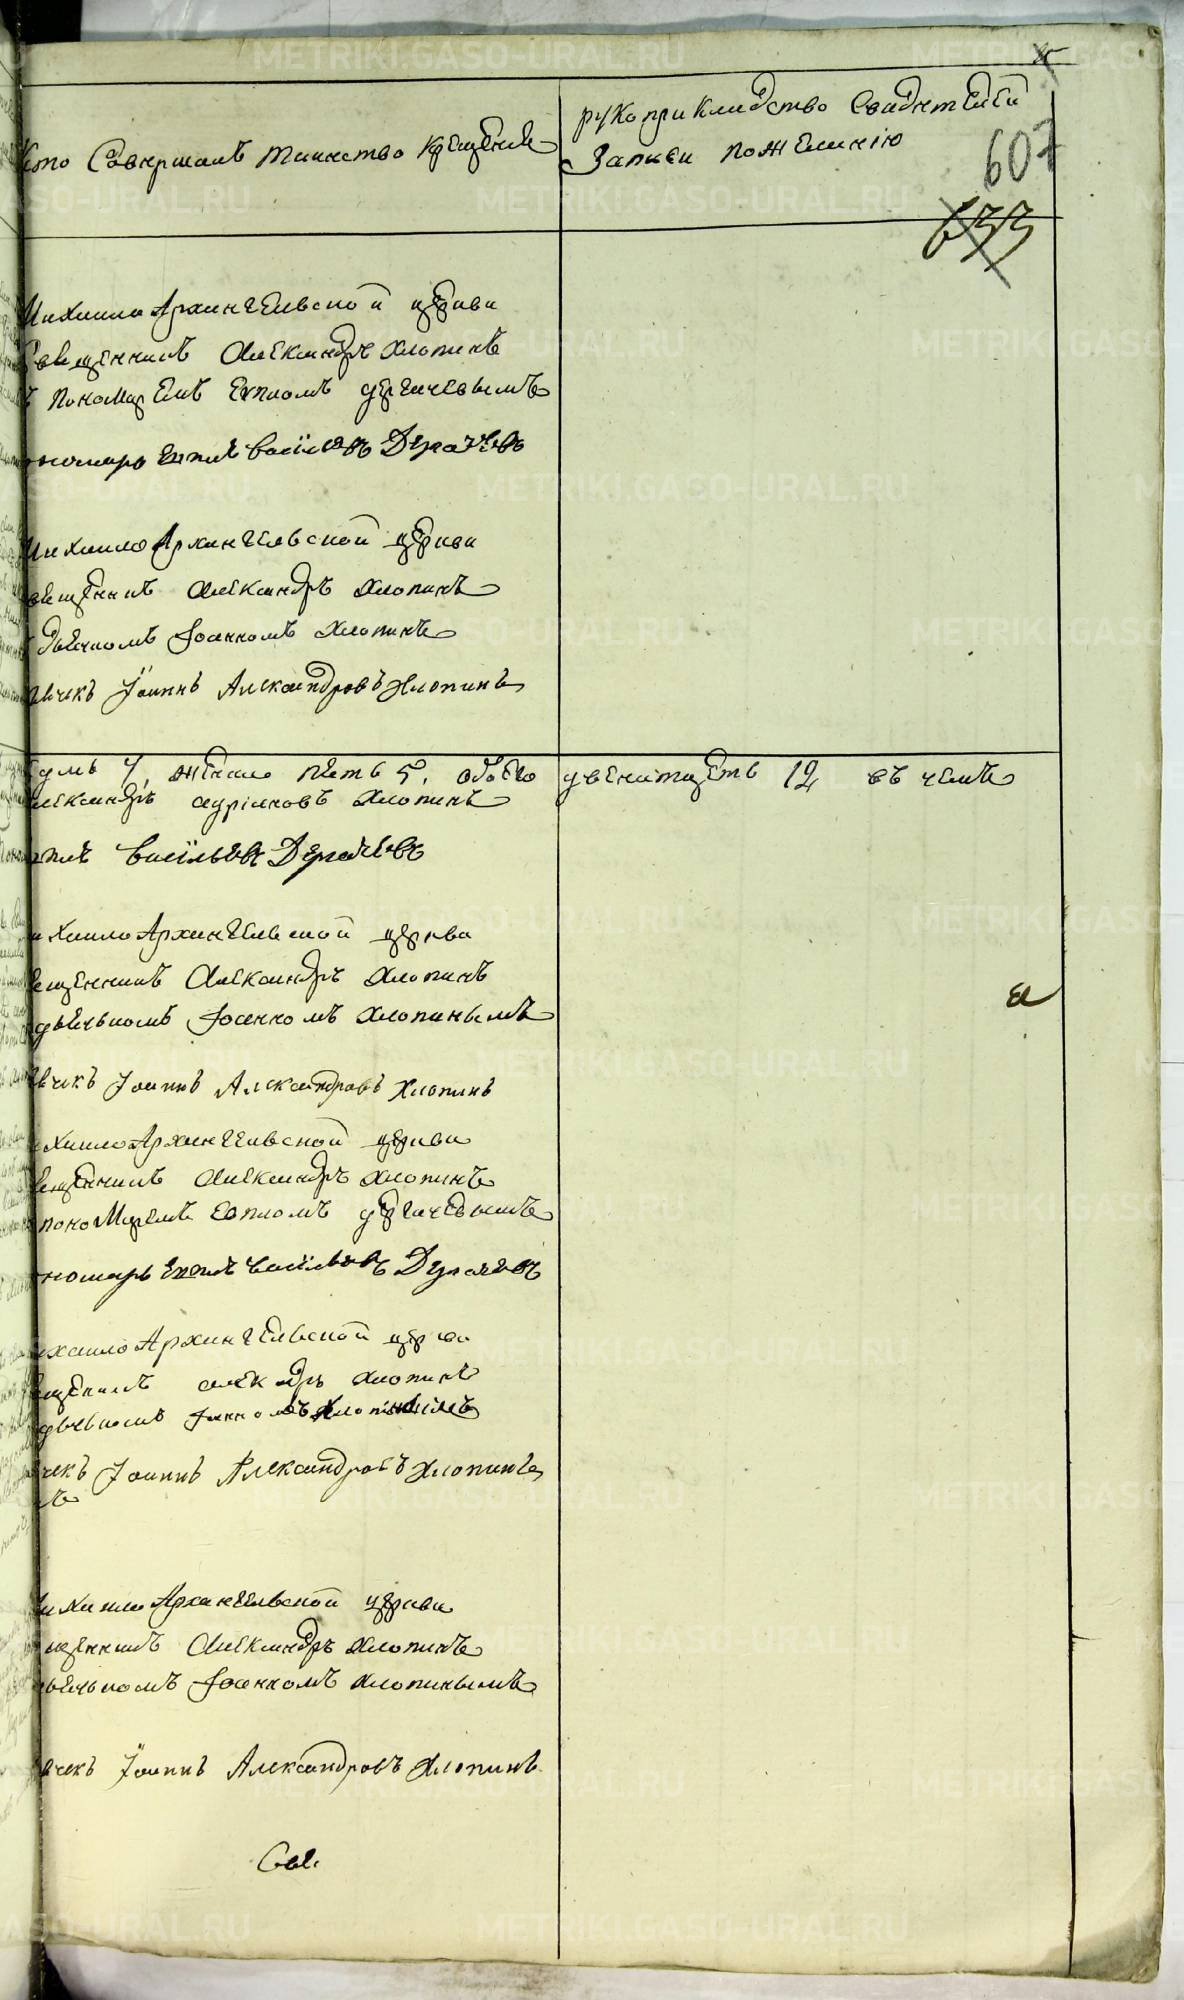 Кто Совершалъ таинство крещенія
рукоприкладство Свидѣтелей
Записи пожеланію
607
633
Михаило Архангельской церкви
Священникъ Александръ Хлопинъ
съ пономаремъ Евпломъ дергачевымъ
пономарь Евплъ Васильевъ Дергачевъ
Михаило Архангельской церкви
священникъ Александръ Хлопинъ
дьячкомъ Іоанномъ Хлопинъ
дьячекъ Іоаннъ Александровъ Хлопинъ
7, женска пять 5, обоего двенатцеть 12 въ чемъ
Александръ Хлопинъ
Евплъ Васильевъ Дергачевъ
Михаило Архангельской церкви
священникъ Александръ Хлопинъ
дьячькомъ Іоанномъ Хлопинымъ
дьячекъ Іоаннъ Александровъ Хлопинъ
Михаило Архангельской церкви
священникъ Александръ Хлопинъ
пономаремъ Евпломъ дергачевымъ
пономарь Евплъ Васильевъ Дергачевъ
Михаило Архангельской церкви
священникъ Хлопинъ
дьячькомъ Іоанномъ Хлопинымъ
дьячекъ Іоаннъ Александровъ Хлопинъ
Михаило Архангельской церкви
священникъ Александръ Хлопинъ
дьячькомъ Іоанномъ Хлопинымъ
дьячекъ Іоаннъ Александровъ Хлопинъ